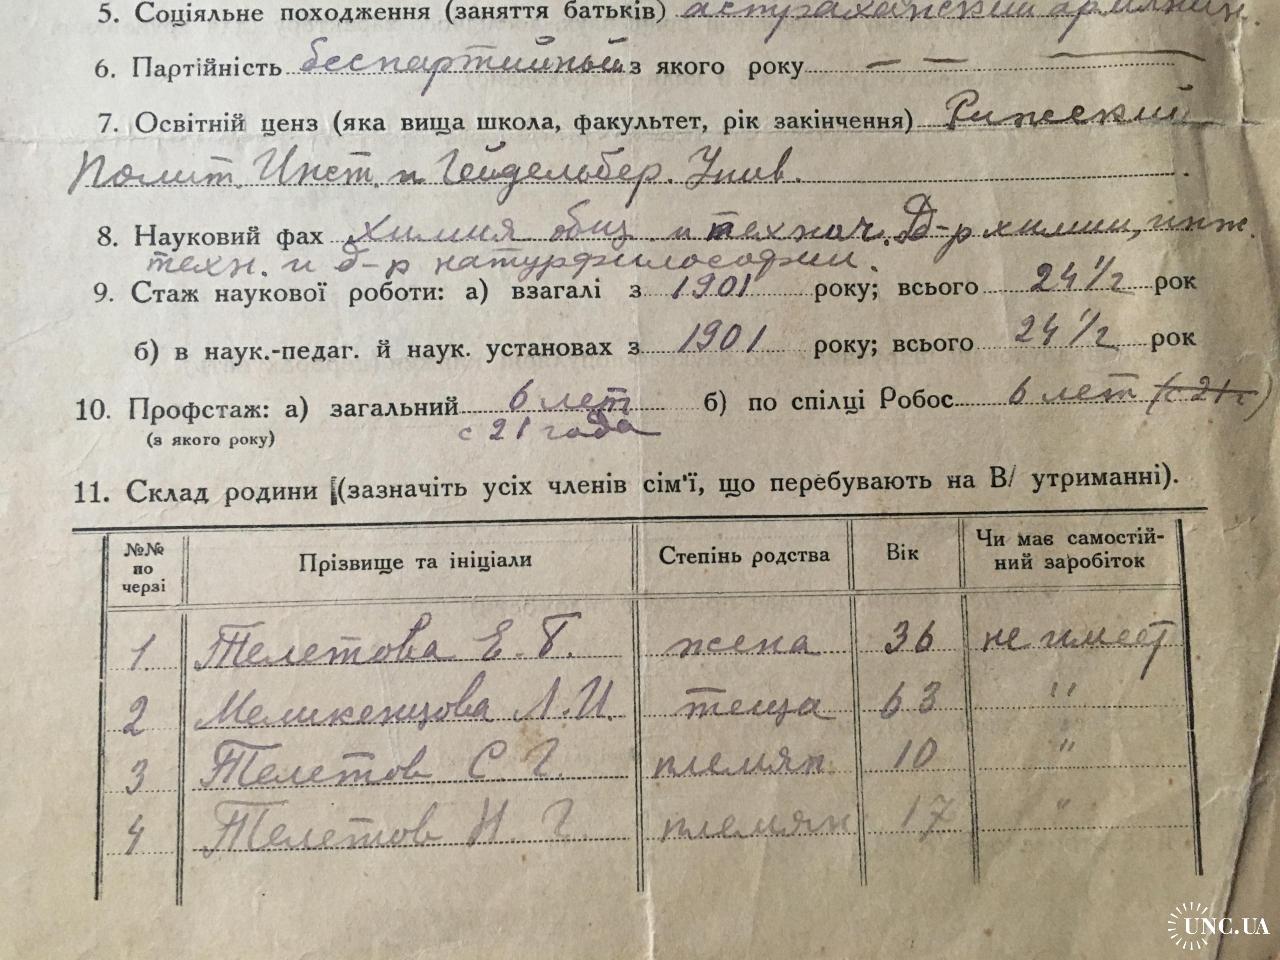 5. Соціяльне походження (заняття батьків) астраханский армянин.
6. Партійність беспартийный з якого року — —
7. Освітній ценз (яка вища школа, факультет, рік закінчення) Рижский
Полит. Инст. и Гейдельбер. Унив.
8. Науковий фах химия общ. и технич. Д-р химии, инж.
техн. и д-р натурфилософии.
9. Стаж наукової роботи: а) взагалі з 1901 року; всього 24 1/2 рок
б) в наук.-педаг. й наук. установах з 1901 року; всього 24 1/2 рок
10. Профстаж: а) загальний 6 лет б) по спілці Робос 6 лет (с 21 г)
(з якого року) с 21 года
11. Склад родини (зазначіть усіх членів сім'ї, що перебувають на В/ утриманні).
№№ по черзі Прізвище та ініціали Степінь родства Вік Чи має самостій-
ний заробіток
1. Телетова Е. Б. жена 36 не имеет
2 Меликенцова Л. И. теща 63 "
3 Телетов С. Г. племян. 10 "
4 Телетов Н. Г. племян 17 "
UNC.UA